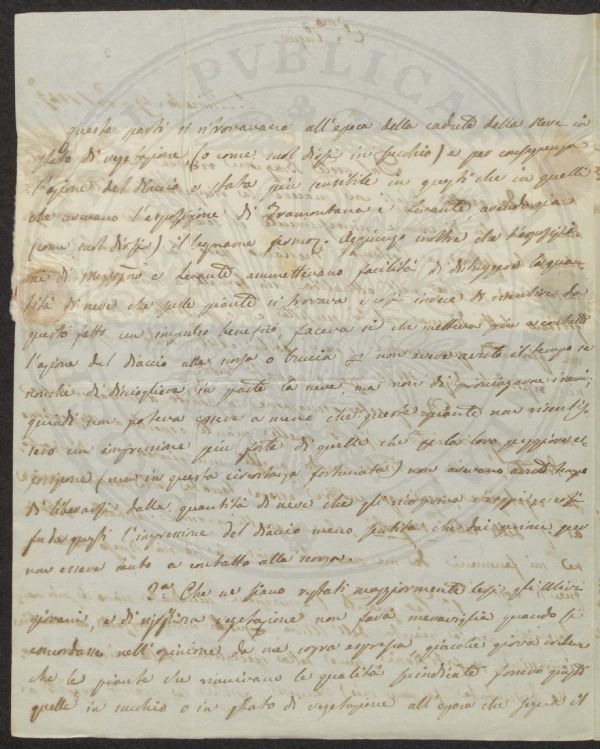 queste parti si ritrovavano all'epoca della caduta della Neve in
stato di vegetazione, (o come suol dirsi in succhio) e per conseguenza
l'azione del diaccio è stata più sensibile in questi che in quelle
che avevano l'esposizione di Tramontana e Levante, avendo già
(come suol dirsi) il legname fermo. Aggiungo inoltre che l'esposizio-
ne di Mezzogno e Levante ammettevano facilità di distruggere la quan-
tità di neve che sulle piante si trovava e così invece di risentire da
questo fatto un impulso benefico, faceva sì che metteva più a contatto
l'azione del diaccio alla scorza o buccia non aveva avuto il tempo se
nonche di disciogliere in parte la neve, ma non di prosciugarne i rami;
quindi non poteva essere a meno che queste piante non risentis-
sero un impressione più forte di quelle che per la loro peggiore es-
posizione (ma in questa circostanza fortunata) non avevano avuto tempo
di liberarsi dalla quantità di neve che gli ricopriva e così
fu da questi l'impressione del diaccio meno patita che dai primi per
non essere tanto a contatto alla scorza.
2.a Che ne siano restati maggiormente lesi gli Ulivi
giovani, e di vegetazione non farà meraviglia quando si
concordasse nell'opinione da me sopra espressa, giacché giova credere
che le piante che riunivano le qualità preindicate furono
quelle in succhio o in stato di vegetazione all'epoca che seguì il
PVBLICA